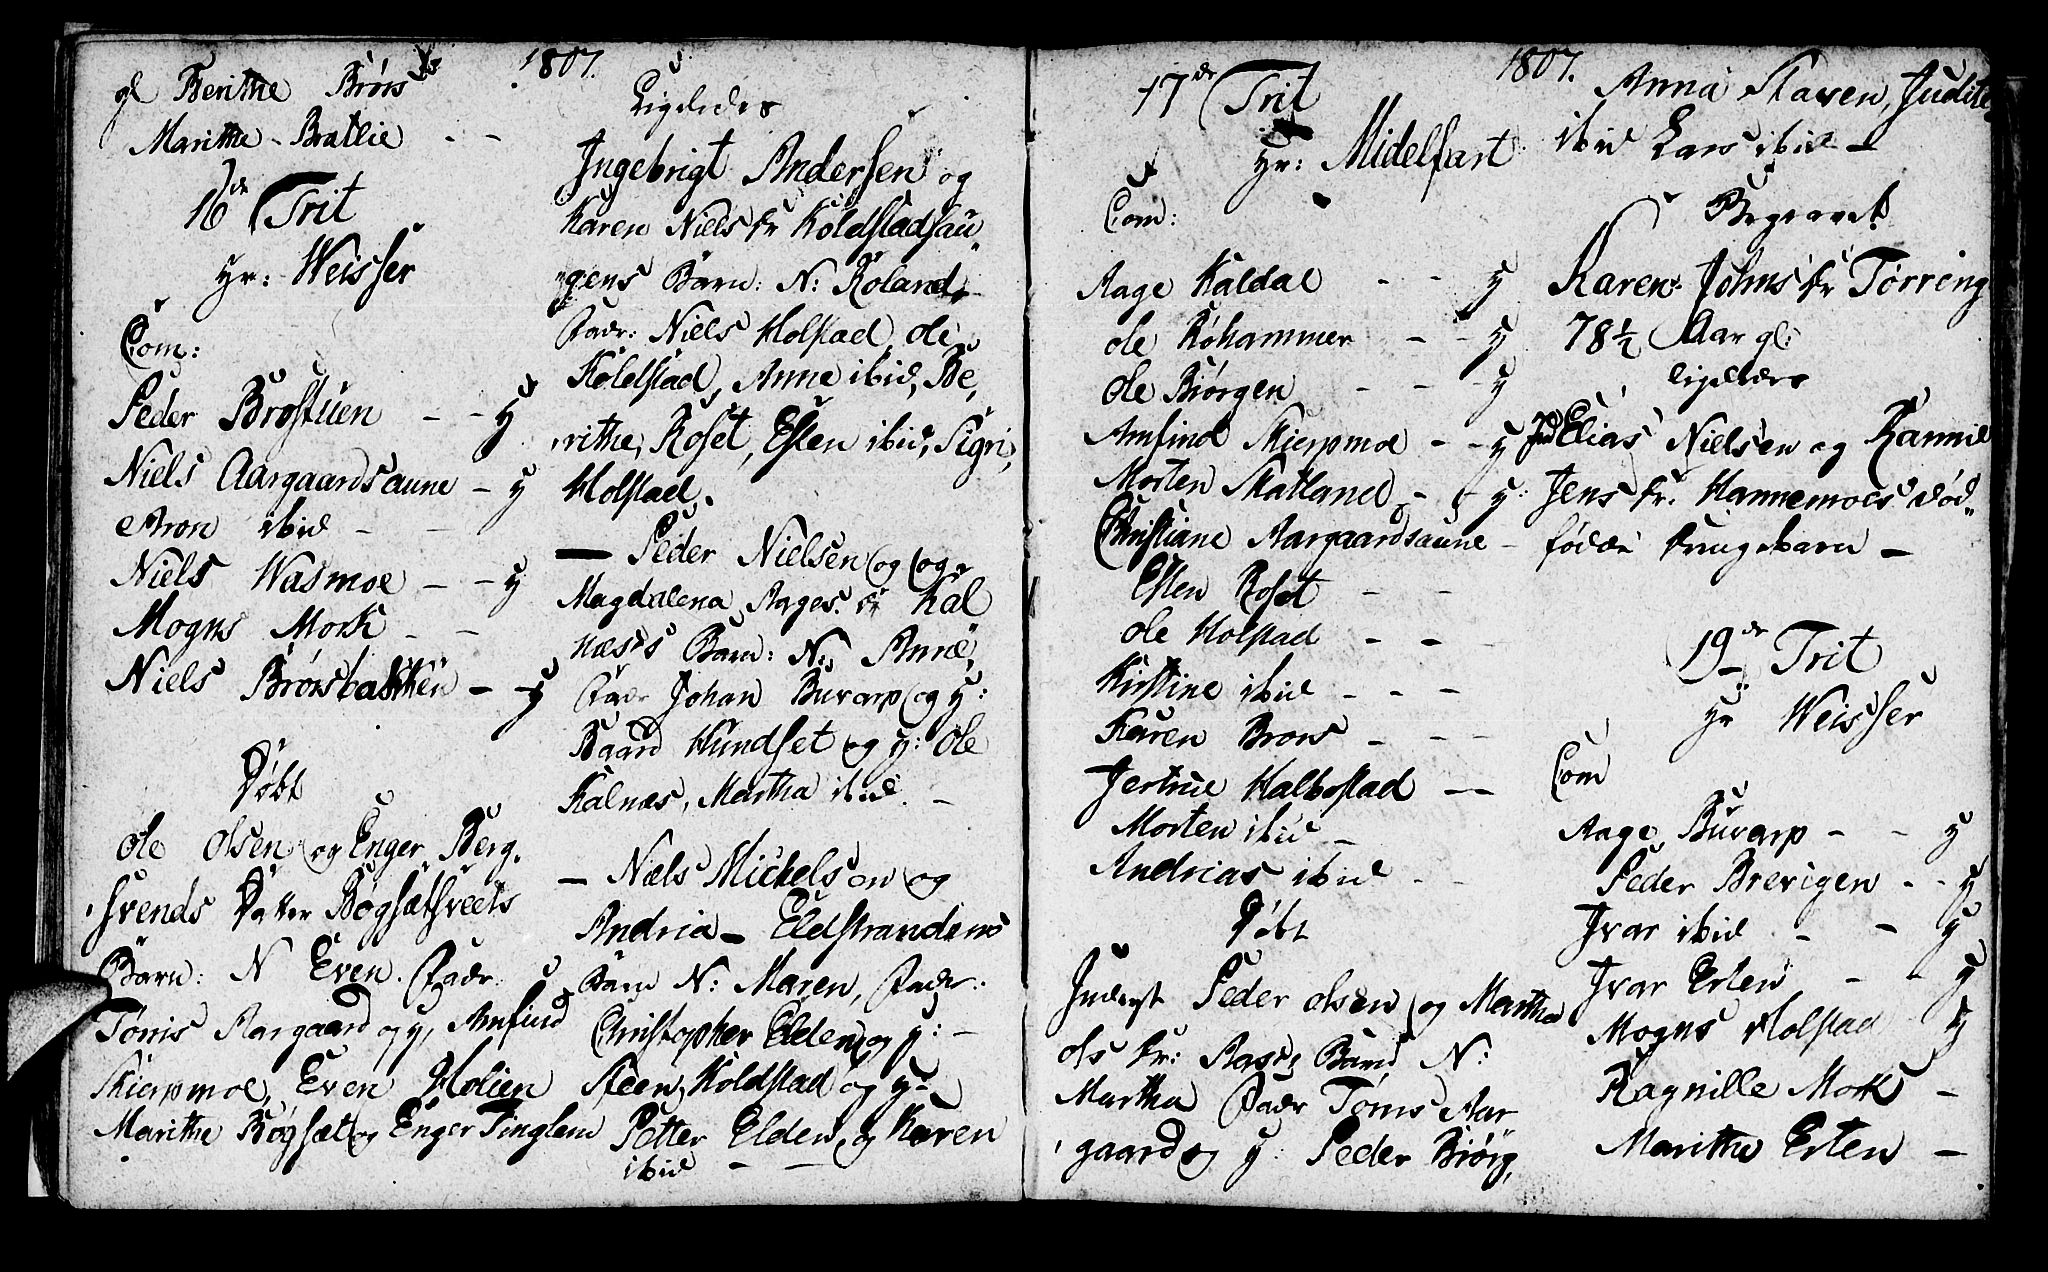 1807.
gl Berithe Brøns
Marithe Bratlie - -
16de Trit
Hr: Weisser
Com:
Peder Brostuen - - H
Niels Aargaardsaune - H
Aron ibid - -
Niels Wasmoe - - H
Mogns Mork - -
Niels Brønsbakken - - H
Døbt
Ole Olsen og Enger Berg,
svends Datter Bøgsætsveets
Barn: N Even. Fadr:
Tønis Aargaard og H, Amfind
Skierpmoe, Even Holien
Marithe Bøgsæt og Enger Tinglem
Ligeledes
Ingebrigt Andersen og
Karen Niels Dr Koldstadsau
gens Barn: N: Roland,
Fadr: Niels Holstad, Ole
Koldstad, Anne ibid, Be,
rithe, Roset, Esten ibid, Sigri,
Holstad.
— Peder Nielsen og
Magdalena Aages Dr Kal
næses Barn: N: Anne,
Fadr Johan Buvarp og H:
Baard Hundset og H: Ole
Kalnæs, Martha ibid. -
— Næls Mickelsøn og
Andria - Eldstrandens
Barn N: Maren, Fadr:
Christopher Elden og H: -
Steen Koldstad og H -
Petter Elden, og Karen
ibid - -
1807.
17de Trit
Hr: Midelfart
Com:
Aage Kaldal - - H
Ole Røhammer - - H
Ole Biørgen - - - H
Amfind Skierpmoe - - H
Morten Statland - - H
Christiane Aargaardsaune -
Esten Roset - -
Ole Holstad - -
Kirstine ibid - - -
Karen Brøns - - -
Jertrue Halbostad - -
Morten ibid -
Andrias ibid - -
Døbt
Inderst Peder Olsen og Martha
Ols Dr: Barn N:
Martha Fadr Tønis Aar
gaard og H: Peder Biørg,
Anna Staven, Judite
ibid Lars ibid -
Begravet
Karen Johns Dr Tørring
78½ Aar gl:
ligeledes
Elias Nielsen og Rannie
Jens Dr. Hannemoes død
fødde Drengebarn -
19de Trit
Hr Weisser
Com
Aage Buvarp - - H
Peder Brevigen - - H
Ivar ibid - - H
Ivar Erten - - H
Mogns Holstad - H
Ragnille Mork -
Marithe Erten -